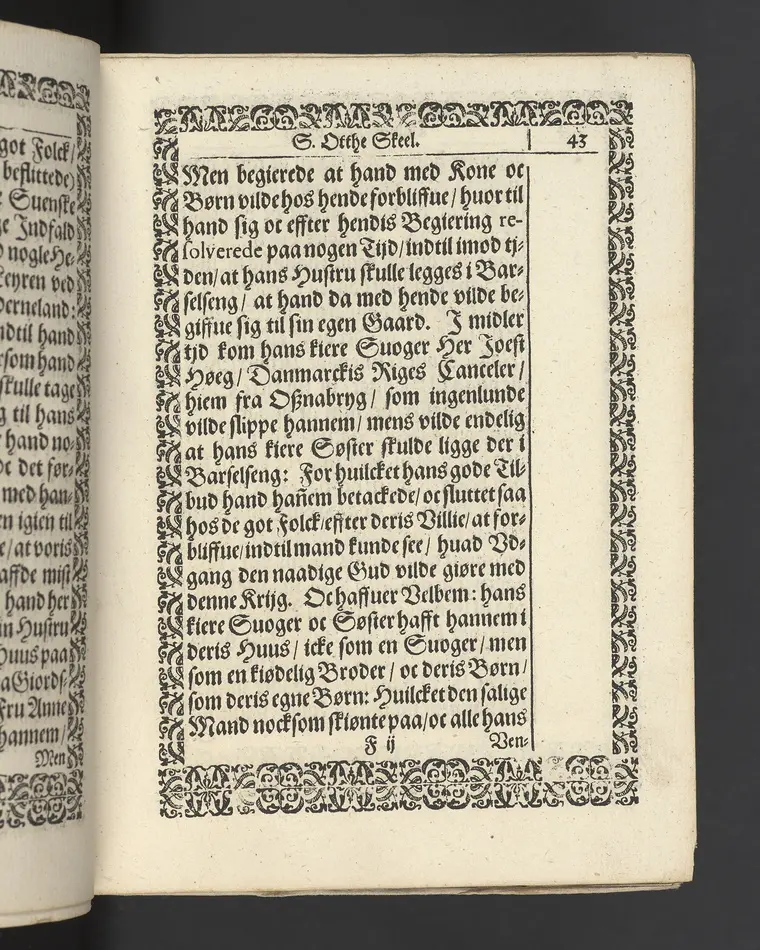 got Folck/
beflittede)
Suenske
Indfald
nogle He-
Leyren ved
derneland:
ndtil hand
som hand
skulle tage
til hans
hand no-
det før-
med han-
igien til
e/ at voris
affde mist
hand her
Hustru
Huus paa
Giords-
Fru Anne
hannem/
Men
S. Otthe Skeel.
43
Men begierede at hand med Kone oc
Børn vilde hos hende forbliffue/ huor til
hand sig oc effter hendis Begiering re-
solverede paa nogen Tijd/ indtil imod tj-
den/ at hans Hustru skulle legges i Bar-
selseng/ at hand da med hende vilde be-
giffue sig til sin egen Gaard. I midler
tjd kom hans kiere Suoger Her Joest
Høeg/ Danmarckis Riges Canceler/
hiem fra Oßnabryg/ som ingenlunde
vilde slippe hannem/ mens vilde endelig
at hans kiere Søster skulde ligge der i
Barselseng: For huilcket hans gode Til-
bud hand hañem betackede/ oc sluttet saa
hos de got Folck/ effter deris Villie/ at for-
bliffue/ indtil mand kunde see/ huad Vd-
gang den naadige Gud vilde giøre med
denne Krijg. Oc haffuer Velbem: hans
kiere Suoger oc Søster hafft hannem i
deris Huus/ icke som en Suoger/ men
som en kiødelig Broder/ oc deris Børn/
som deris egne Børn: Huilcket den salige
Mand nocksom skiønte paa/ oc alle hans
F ij
Ven-